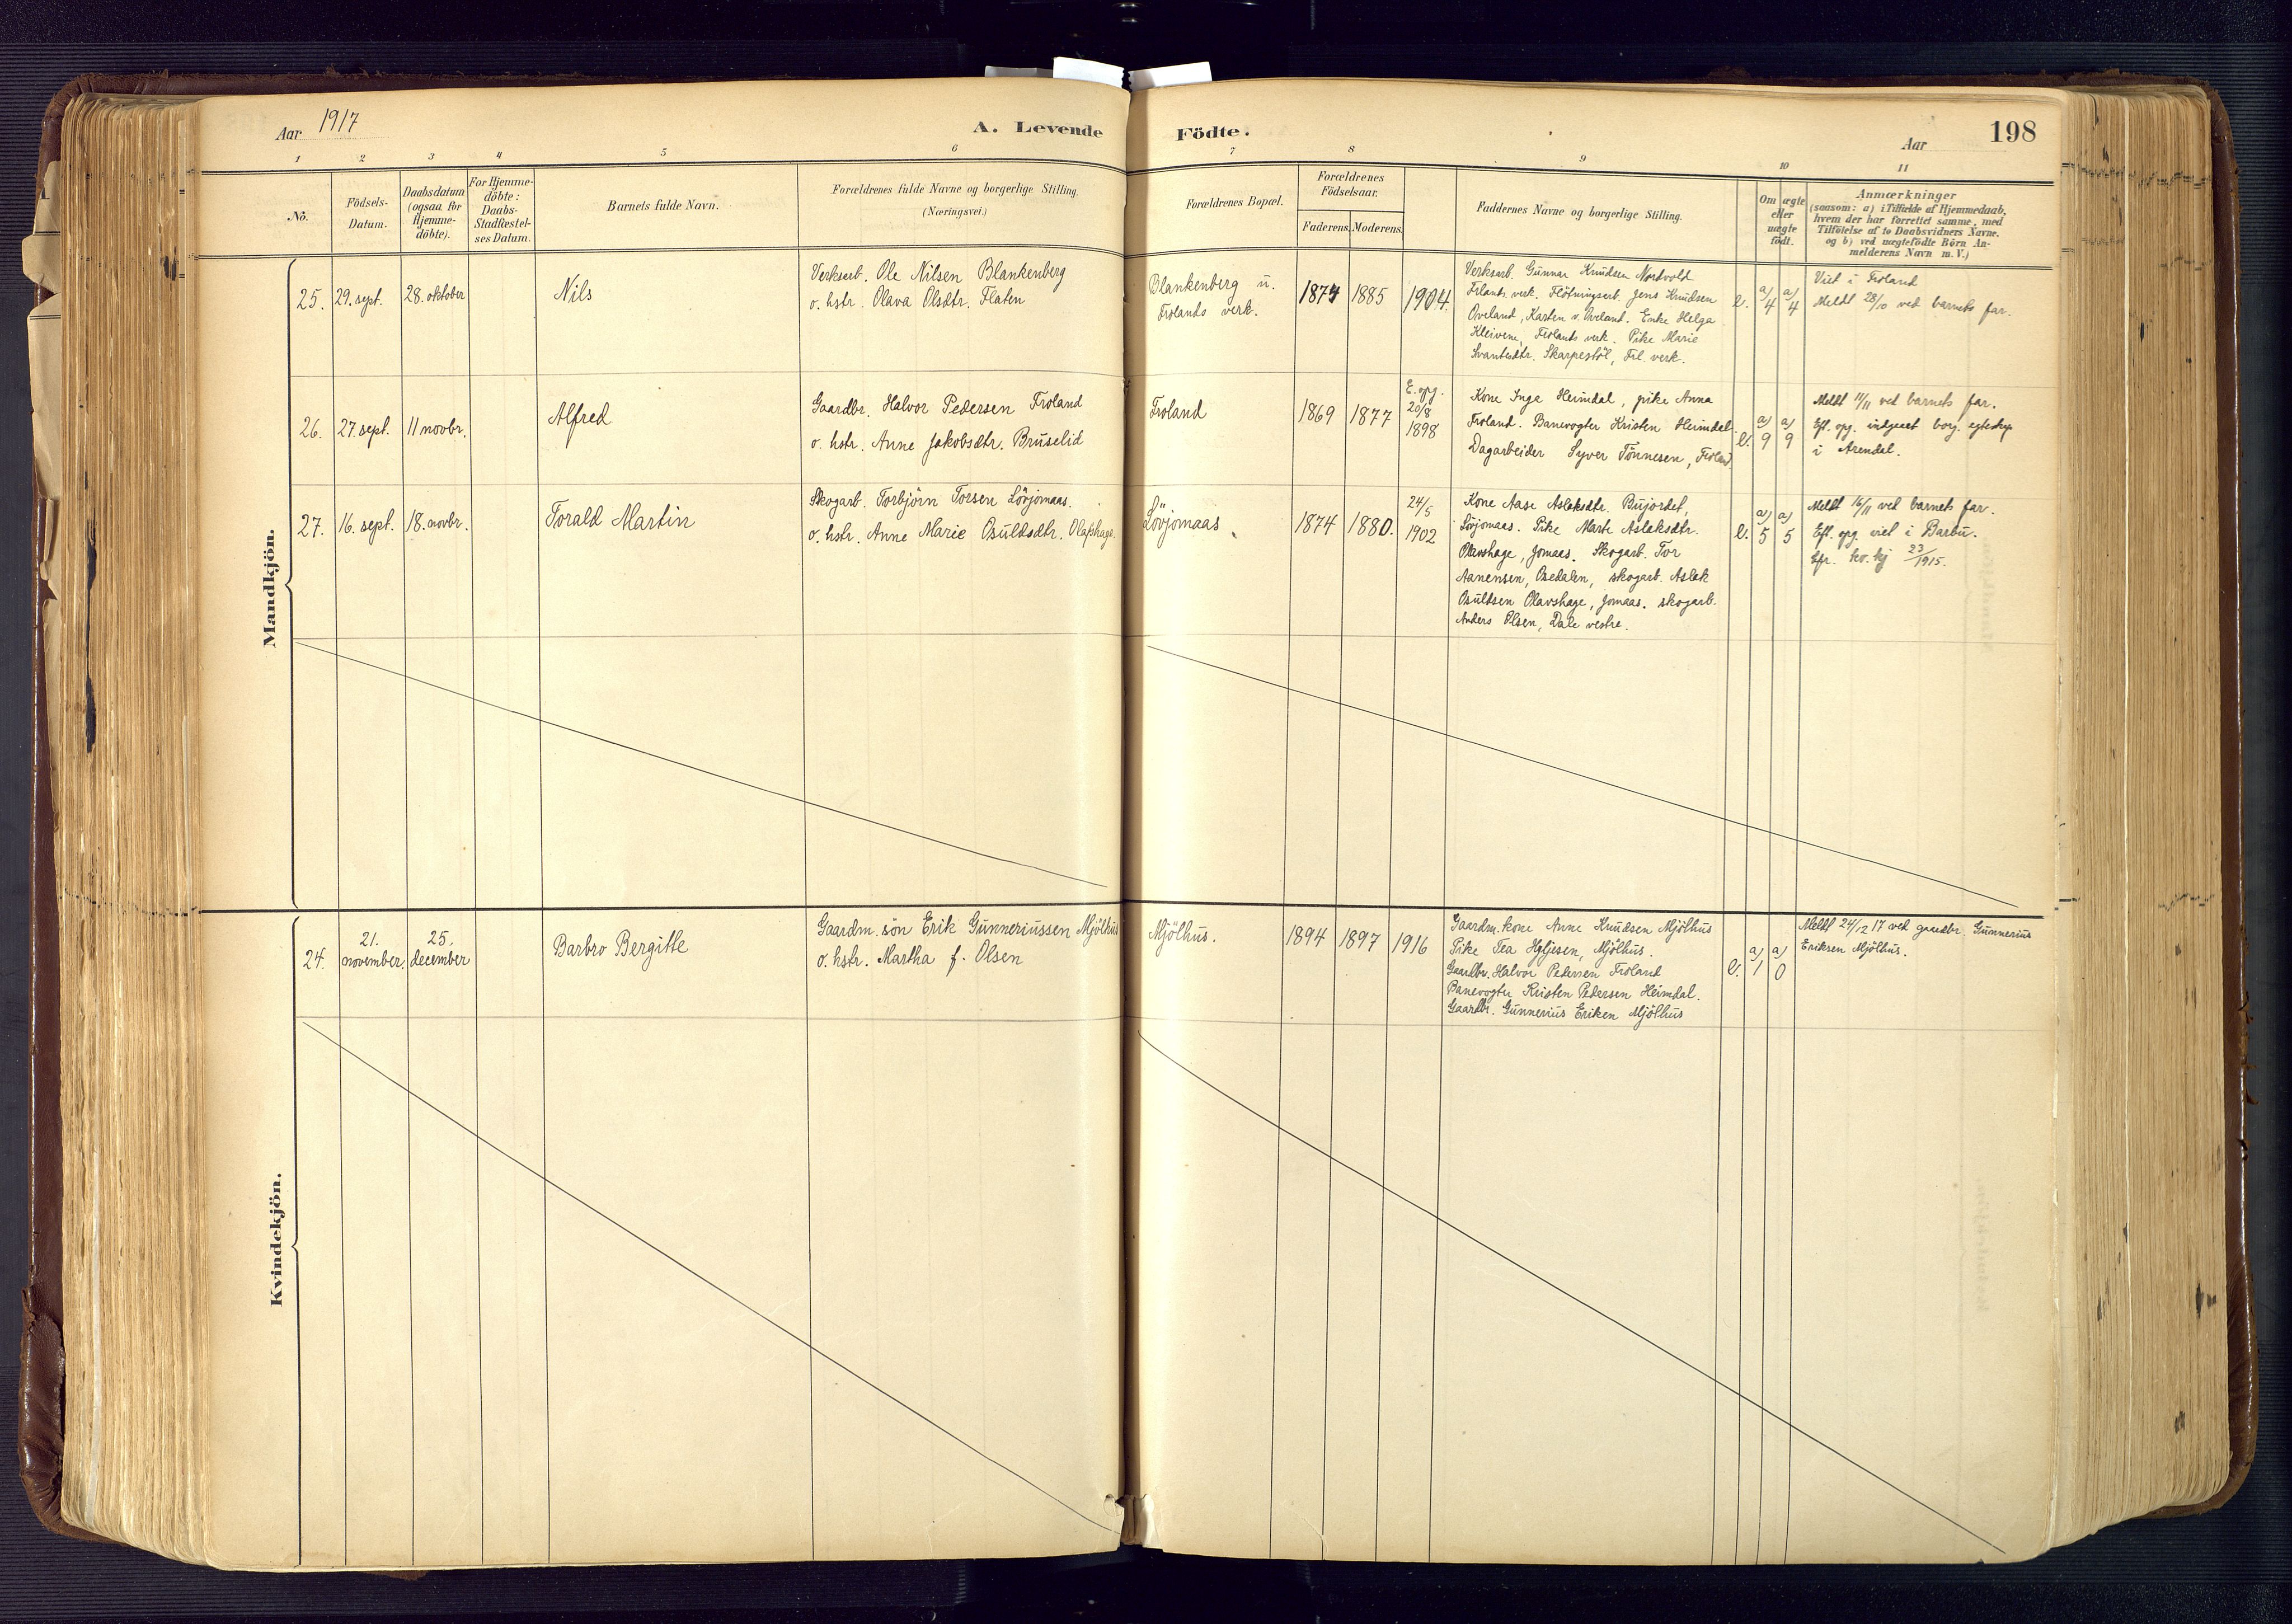 Aar 1917
A. Levende Födte.
Aar
198
1 2 3 4 5 6 7 8 9 10 11
No.
Födsels-Datum.
Daabsdatum (ogsaa for Hjemme-döbte).
For Hjemme-döbte: Daabs-Stadfæstel-ses Datum.
Barnets fulde Navn.
Forældrenes fulde Navne og borgerlige Stilling.
(Næringsvei.)
Forældrenes Bopæl.
Forældrenes Födselsaar.
Faderens. Moderens.
Faddernes Navne og borgerlige Stilling.
Om ægte eller uægte födt.
Anmærkninger
(saasom: a) i Tilfælde af Hjemmedaab,
hvem der har forrettet samme, med
Tilföielse af to Daabsvidners Navne,
og b) ved uægtefödte Börn An-
melderens Navn m. V.)
Mandkjön.
25. 29. sept. 28. oktober
Nils
Verksarb. Ole Nilsen Blankenberg
o. hstr. Olava Olsdtr. Flaten
Blankenberg u.
Frolands verk.
1874 1885 1904.
Verksarb. Gunnar Knudsen Nordvold
Frlands verk. Flötningsarb. Jens Knudsen
Oveland, Karsten v. Oveland. Enke Helga
Kleivene, Frolands verk. Pike Marie
Svantesdtr. Skarpestöl, Frl. verk.
e. a) 4 a) 4
Viet i Froland
Meldt 28/10 ved barnets far.
26. 27. sept. 11 novbr.
Alfred
Gaardbr. Halvor Pedersen Froland
o. hstr. Anne Jakobsdtr. Bruselid
Froland
1869 1877
E. opg.
20/8
1898
Kone Inga Heimdal, pike Anna
Froland. Banevogter Kristen Heimdal.
Dagarbeider Syver Tönnesen, Froland.
e. a) 9 a) 9
Meldt 11/11 ved barnets far.
Eft. opg. indgaaet borg. egteskap
i Arendal.
27. 16. sept. 18. novbr.
Torald Martin
Skogarb. Torbjörn Torsen Lövjomaas.
o. hstr. Anne Marie Osuldsdtr. Olafshage.
Lövjomaas
1874 1880.
24/5
1902
Kone Aase Aslaksdtr. Bujordet,
Lövjomaas. Pike Marte Aslaksdtr.
Olavshage, Jomaas. Skogarb. Tor
Aanensen, Osedalen, skogarb. Aslak
Osuldsen Olavshage, Jomaas. skogarb.
Anders Olsen, Dale vestre.
e. a) 5 a) 5
Meldt 16/11 ved barnets far.
Eft. opg. viet i Barbu.
Cfr. kv. kj 23/1915.
Kvindekjön.
24. 21. november. 25. december
Barbro Bergitte
Gaardm. sön Erik Gunneriussen Mjölhus
o. hstr. Martha f. Olsen
Mjölhus.
1894 1897 1916
Gaardm. kone Anne Knudsen Mjölhus
Pike Tea Mjölhus.
Gaardbr. Halvor Pedersen Froland
Banevogter Kristen Pedersen Heimdal.
Gaardbr. Gunnerius Eriksen Mjölhus
e. a) 1 a) 0
Meldt 24/12 17 ved gaardbr. Gunnerius
Eriksen Mjölhus.